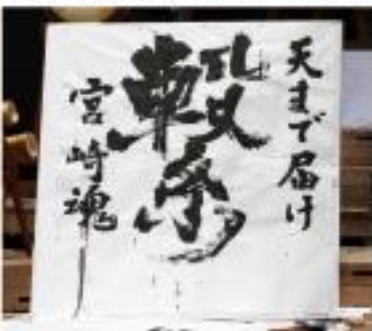 天まで届け
繋
宮崎魂